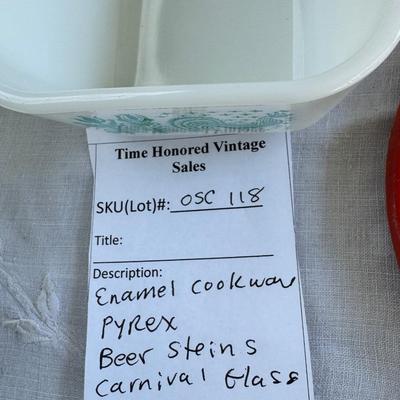 Time Honored Vintage
Sales
SKU(Lot)#: OSC 118
Title:
Description:
Enamel Cookware
Pyrex
Beer Steins
Carnival Glass